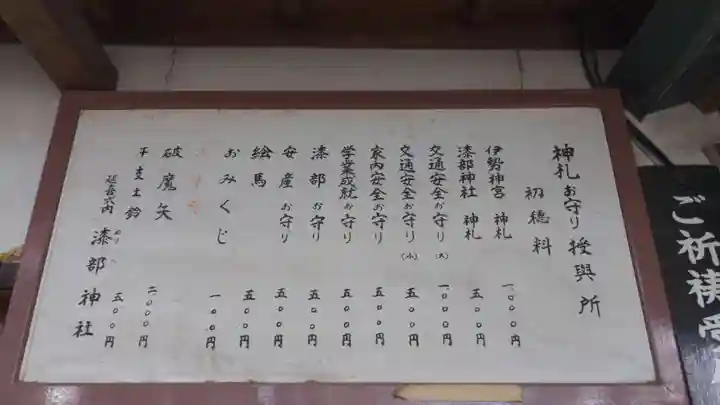 神札お守り授與所
初穂料
伊勢神宮 神札 一、〇〇〇円
漆部神社 神札 五〇〇円
交通安全お守り(大) 一、〇〇〇円
交通安全お守り(小) 五〇〇円
家内安全お守り 五〇〇円
学業成就お守り 五〇〇円
漆部お守り 五〇〇円
安産お守り 五〇〇円
絵馬 五〇〇円
おみくじ 一〇〇円
破魔矢 二、〇〇〇円
干支土鈴 五〇〇円
延喜式内 漆部神社
ご祈祷受